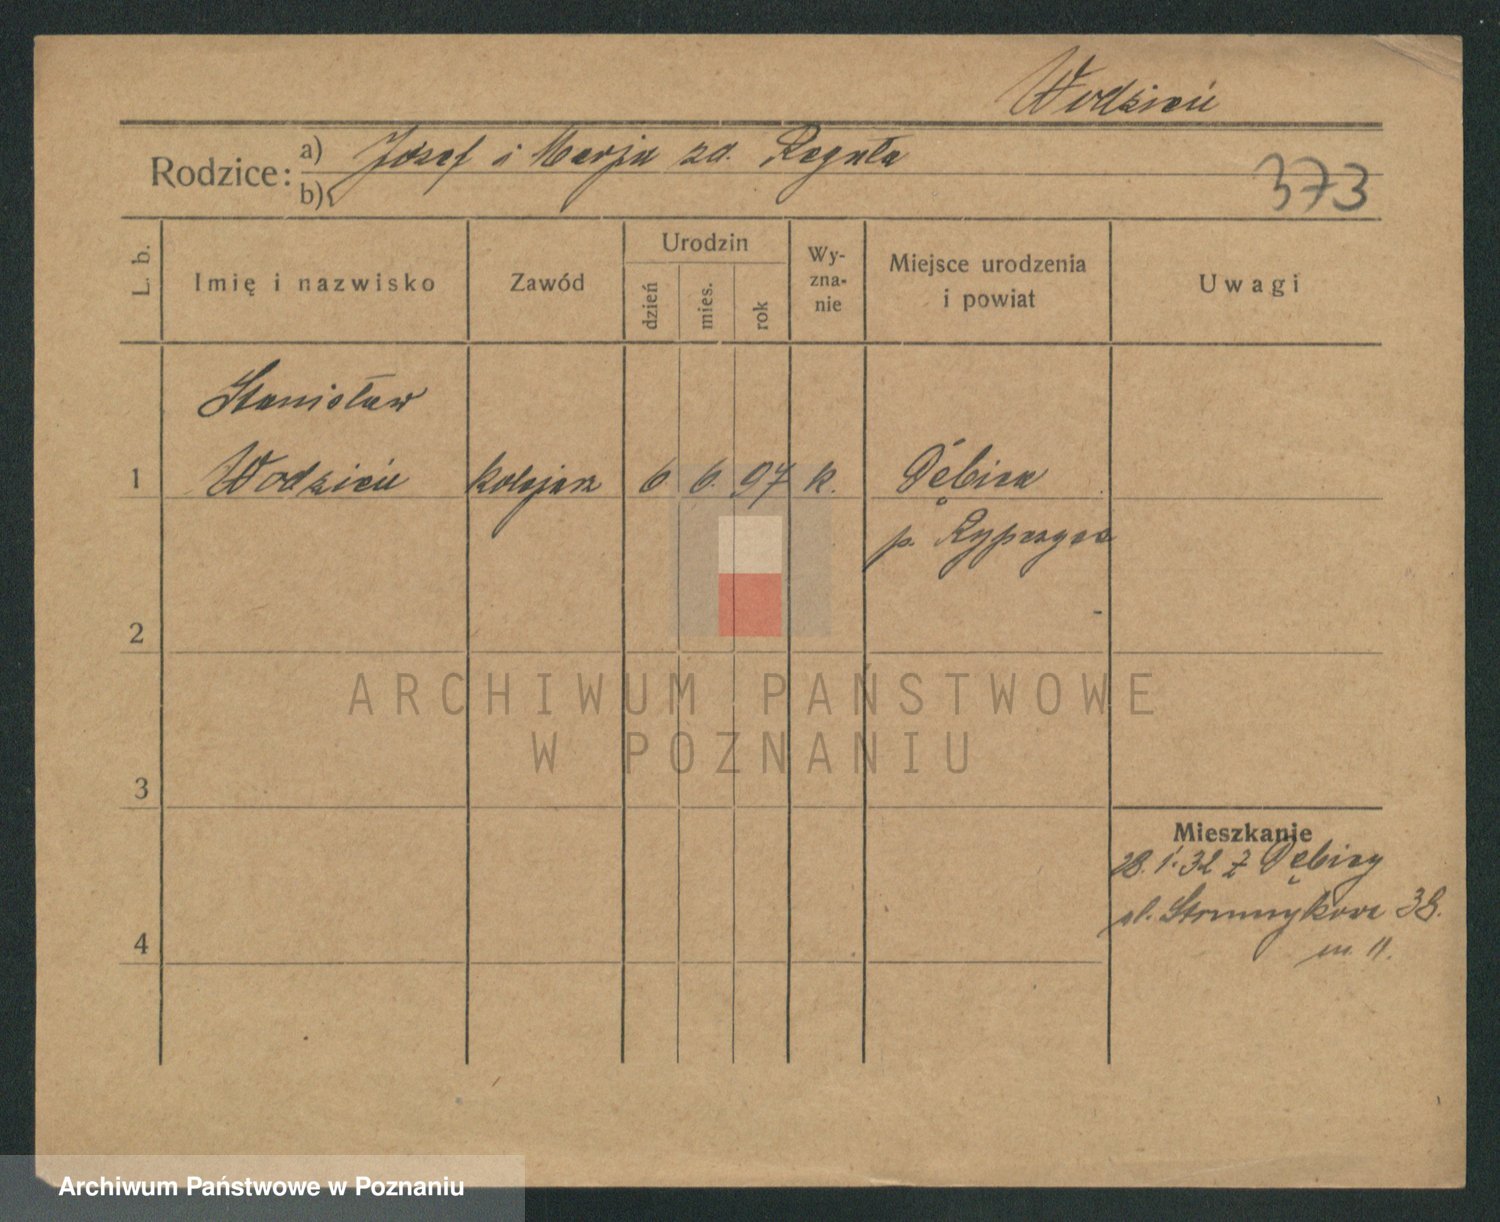 Wodzicń
Rodzice: a) Józef i Marja zd. Reguła
b)
373
L. b.
Imię i nazwisko
Zawód
Urodzin
dzień
mies.
rok
Wy-
zna-
nie
Miejsce urodzenia
i powiat
Uwagi
Stanisław
1 Wodzicń kolejarz 6 6. 97 k. Dębica
p. Rypczyce
2
ARCHIWUM PAŃSTWOWE
W POZNANIU
3
Mieszkanie
28. 1. 32 z Dębicy
ul. Strumykowa 38.
4
m 11.
Archiwum Państwowe w Poznaniu